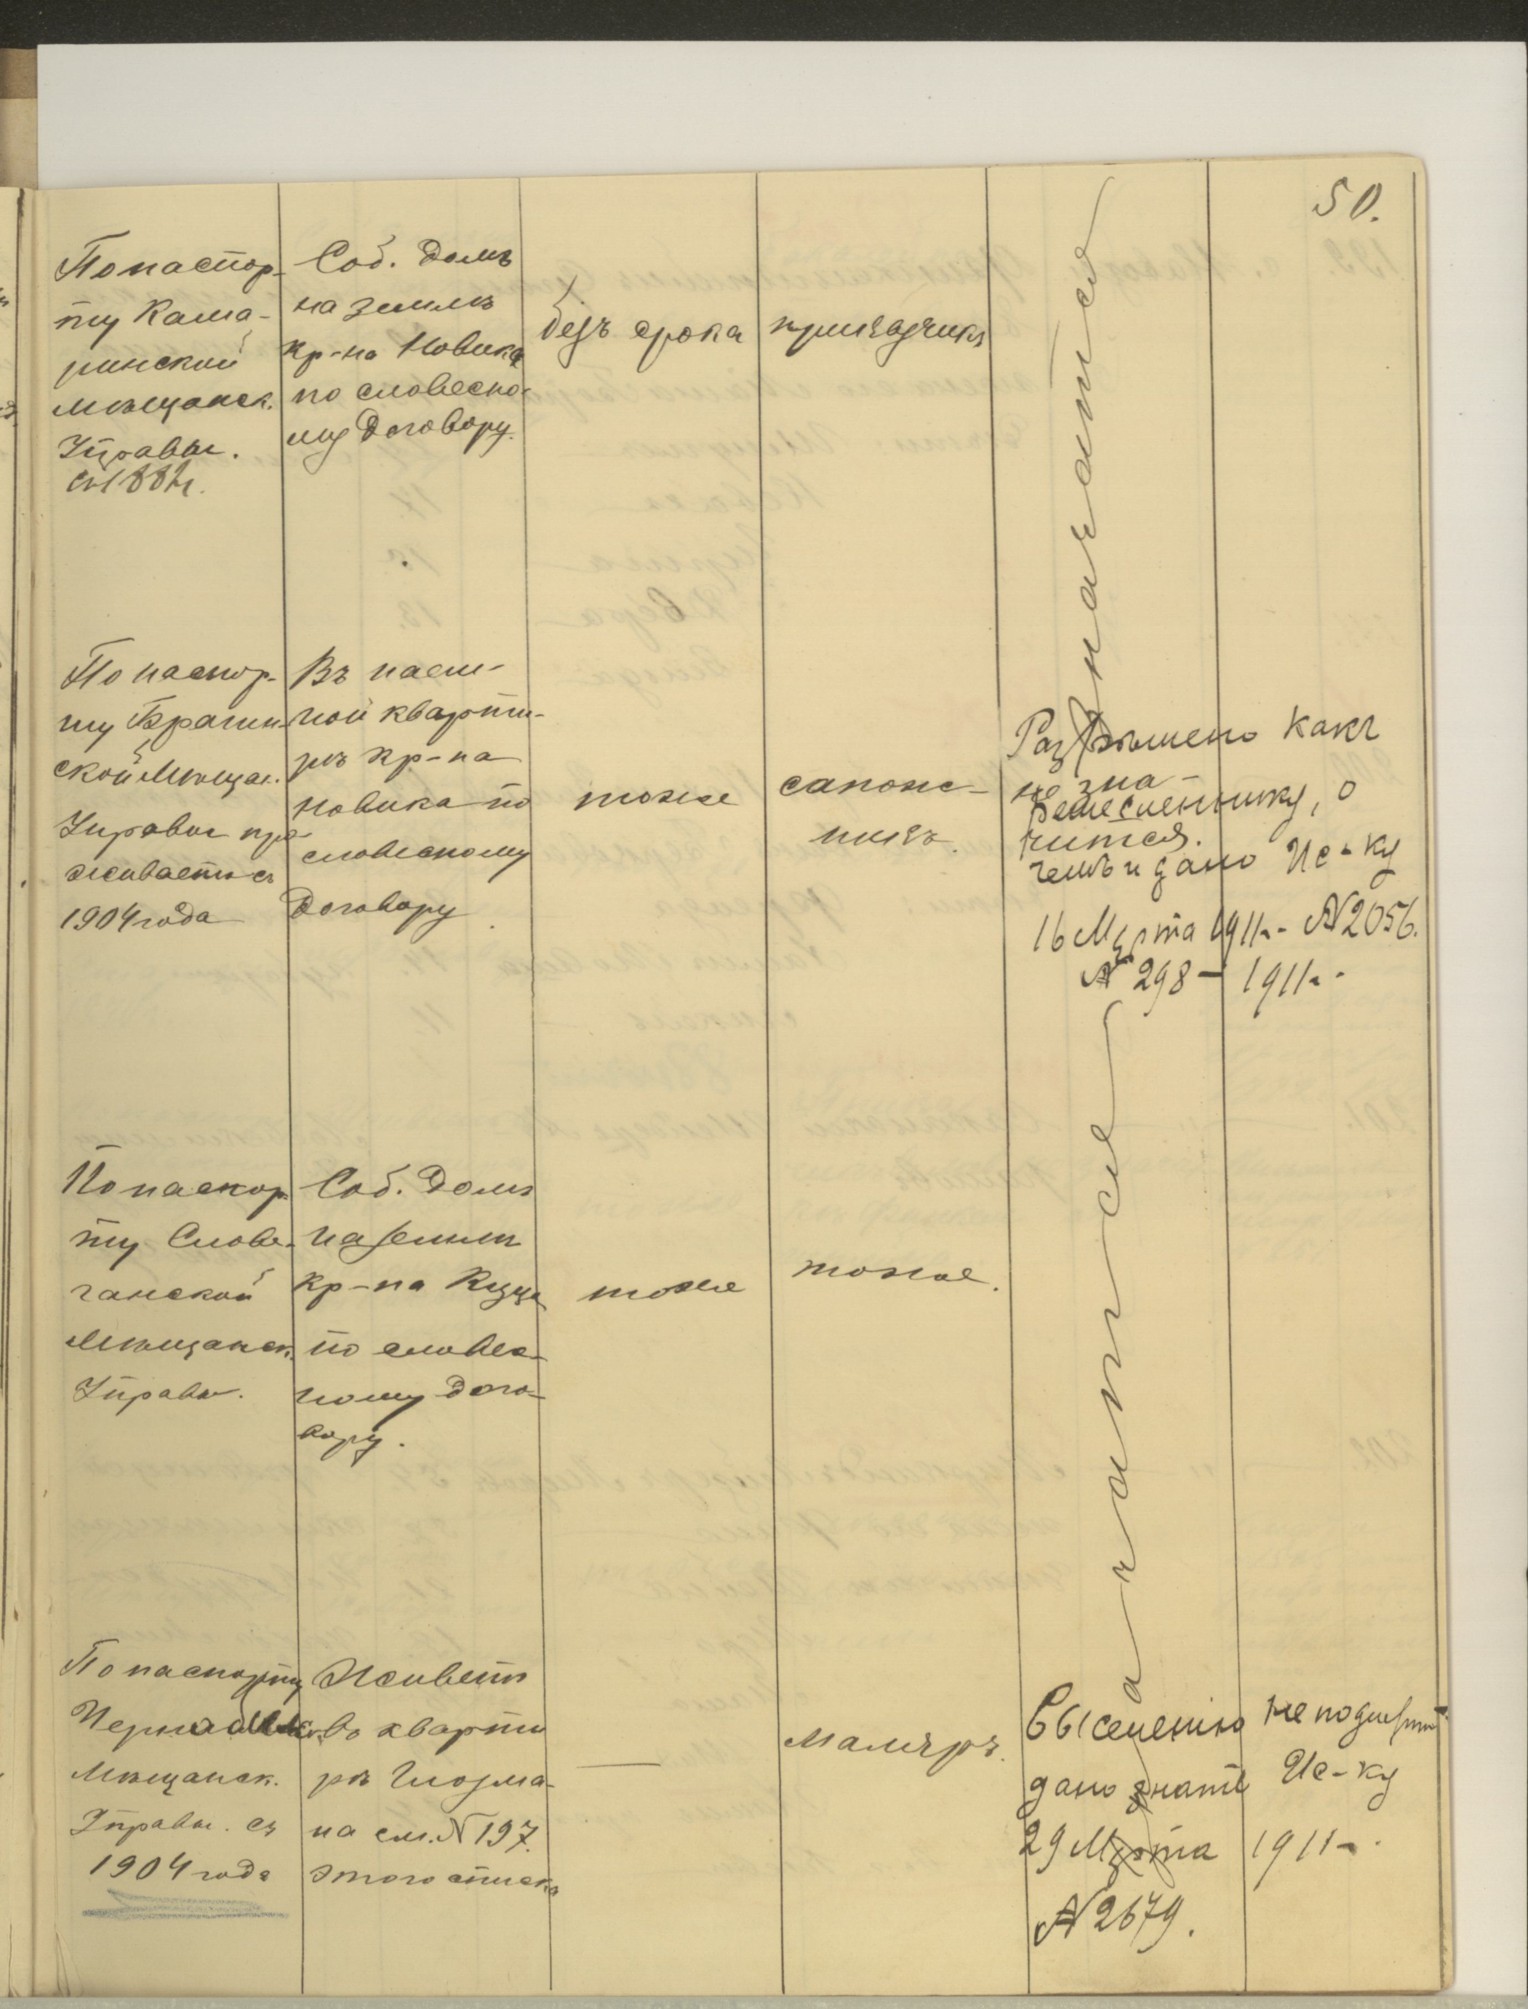 50.
По паспор-
ту Кама-
ринской
мѣщанск.
Управы.
съ 1882 г.
Соб. домъ
на землѣ
кр-на Новика
по словесно-
му договору.
безъ срока
Значатся
По паспор-
ту Брагин-
ской Мѣщан.
Управы про-
живаетъ съ
1904 года
Въ наем-
ной кварти-
рѣ кр-на
Новика по
словесному
договору.
тоже
сапож-
никъ.
Разрѣшено какъ
не зна-
ремесленнику, о
чится.
чемъ и дано Ис-ку
16 Марта 1911 г. № 2056.
№ 298 – 1911 г.
По паспор-
ту Слове-
чанской
Мѣщанск.
Управы.
Соб. домъ
на землѣ
кр-на Куца
по словес-
ному дого-
вору.
тоже
тоже.
По паспорту
Мѣщанск.
Управы. съ
1904 года
Живетъ
въ кварти
рѣ Глозма-
на см. № 197.
этого списка
—
маляръ.
Выселенію не подлежит.
дано знать Ис-ку
29 Марта 1911 г.
№ 2679.